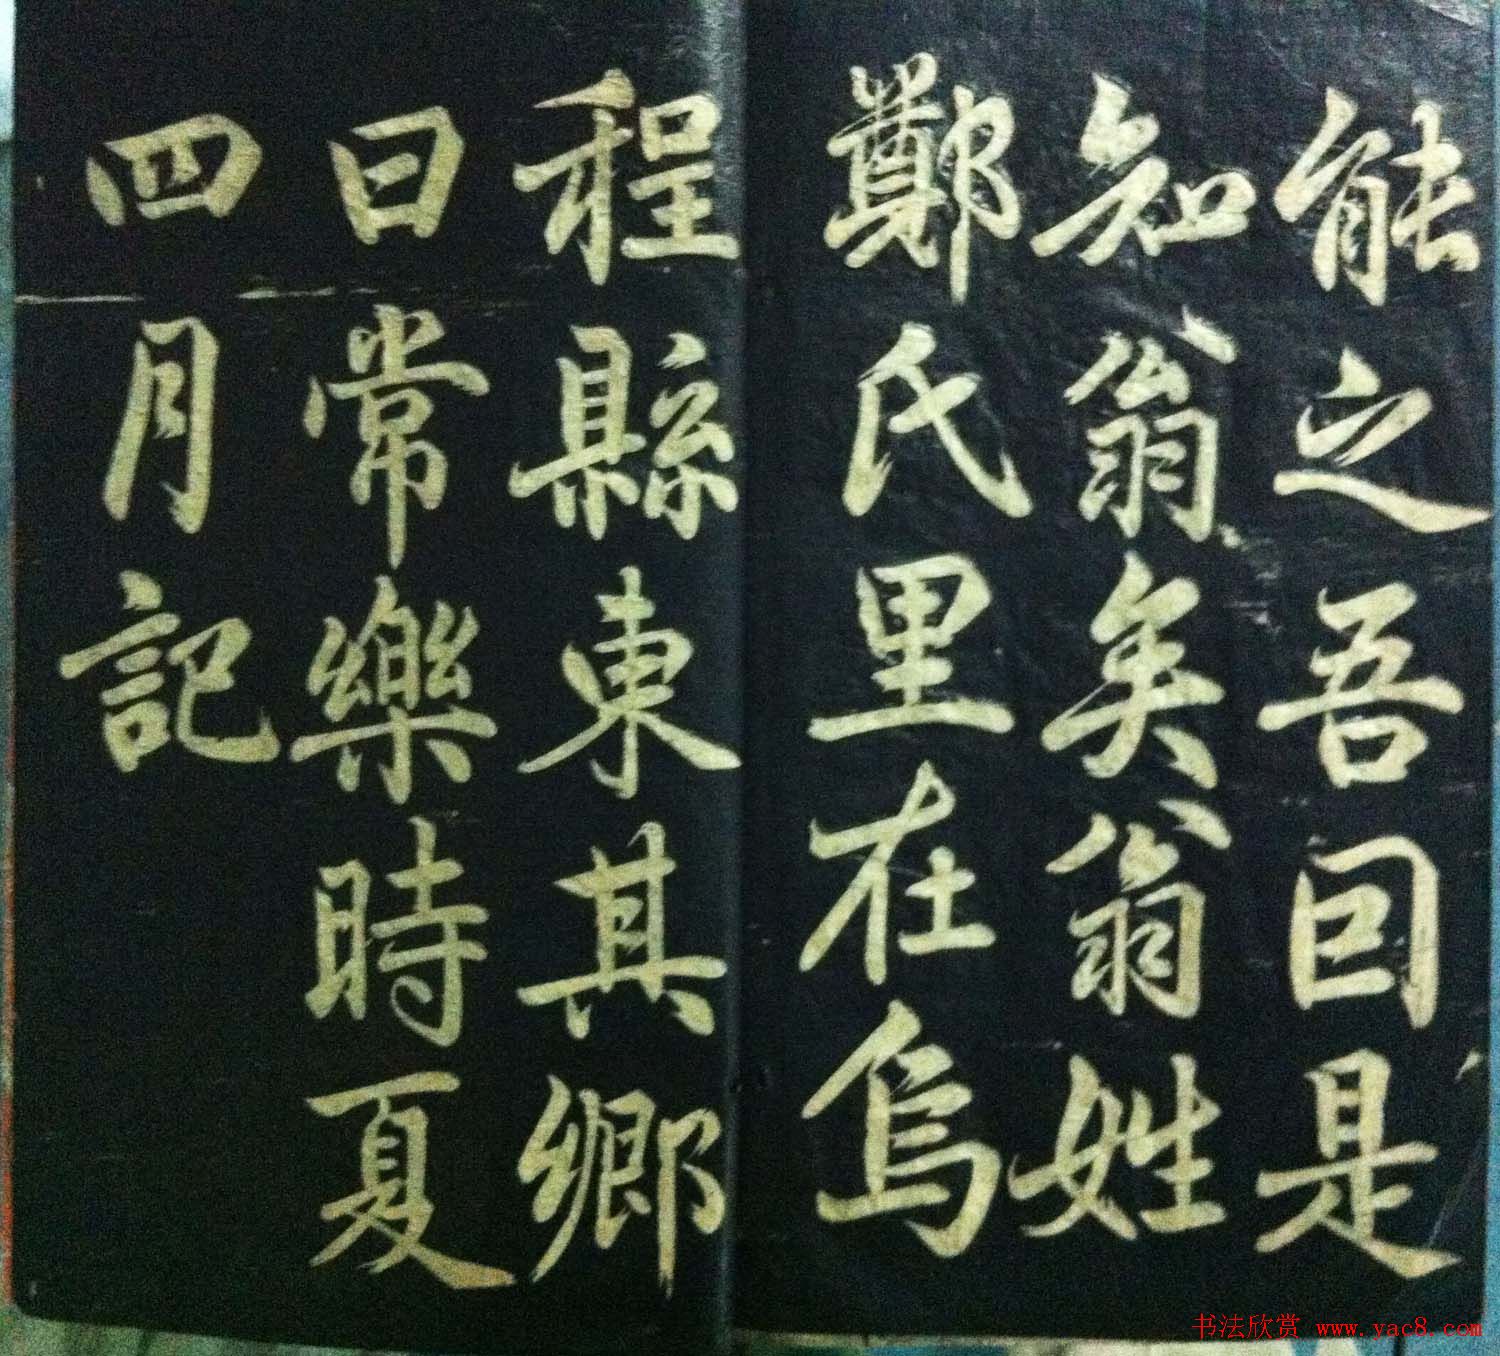 能之吾因是
知翁矣翁姓
鄭氏里在烏
程縣東其鄉
曰常樂時夏
四月記
书法欣赏 www.yac8.com